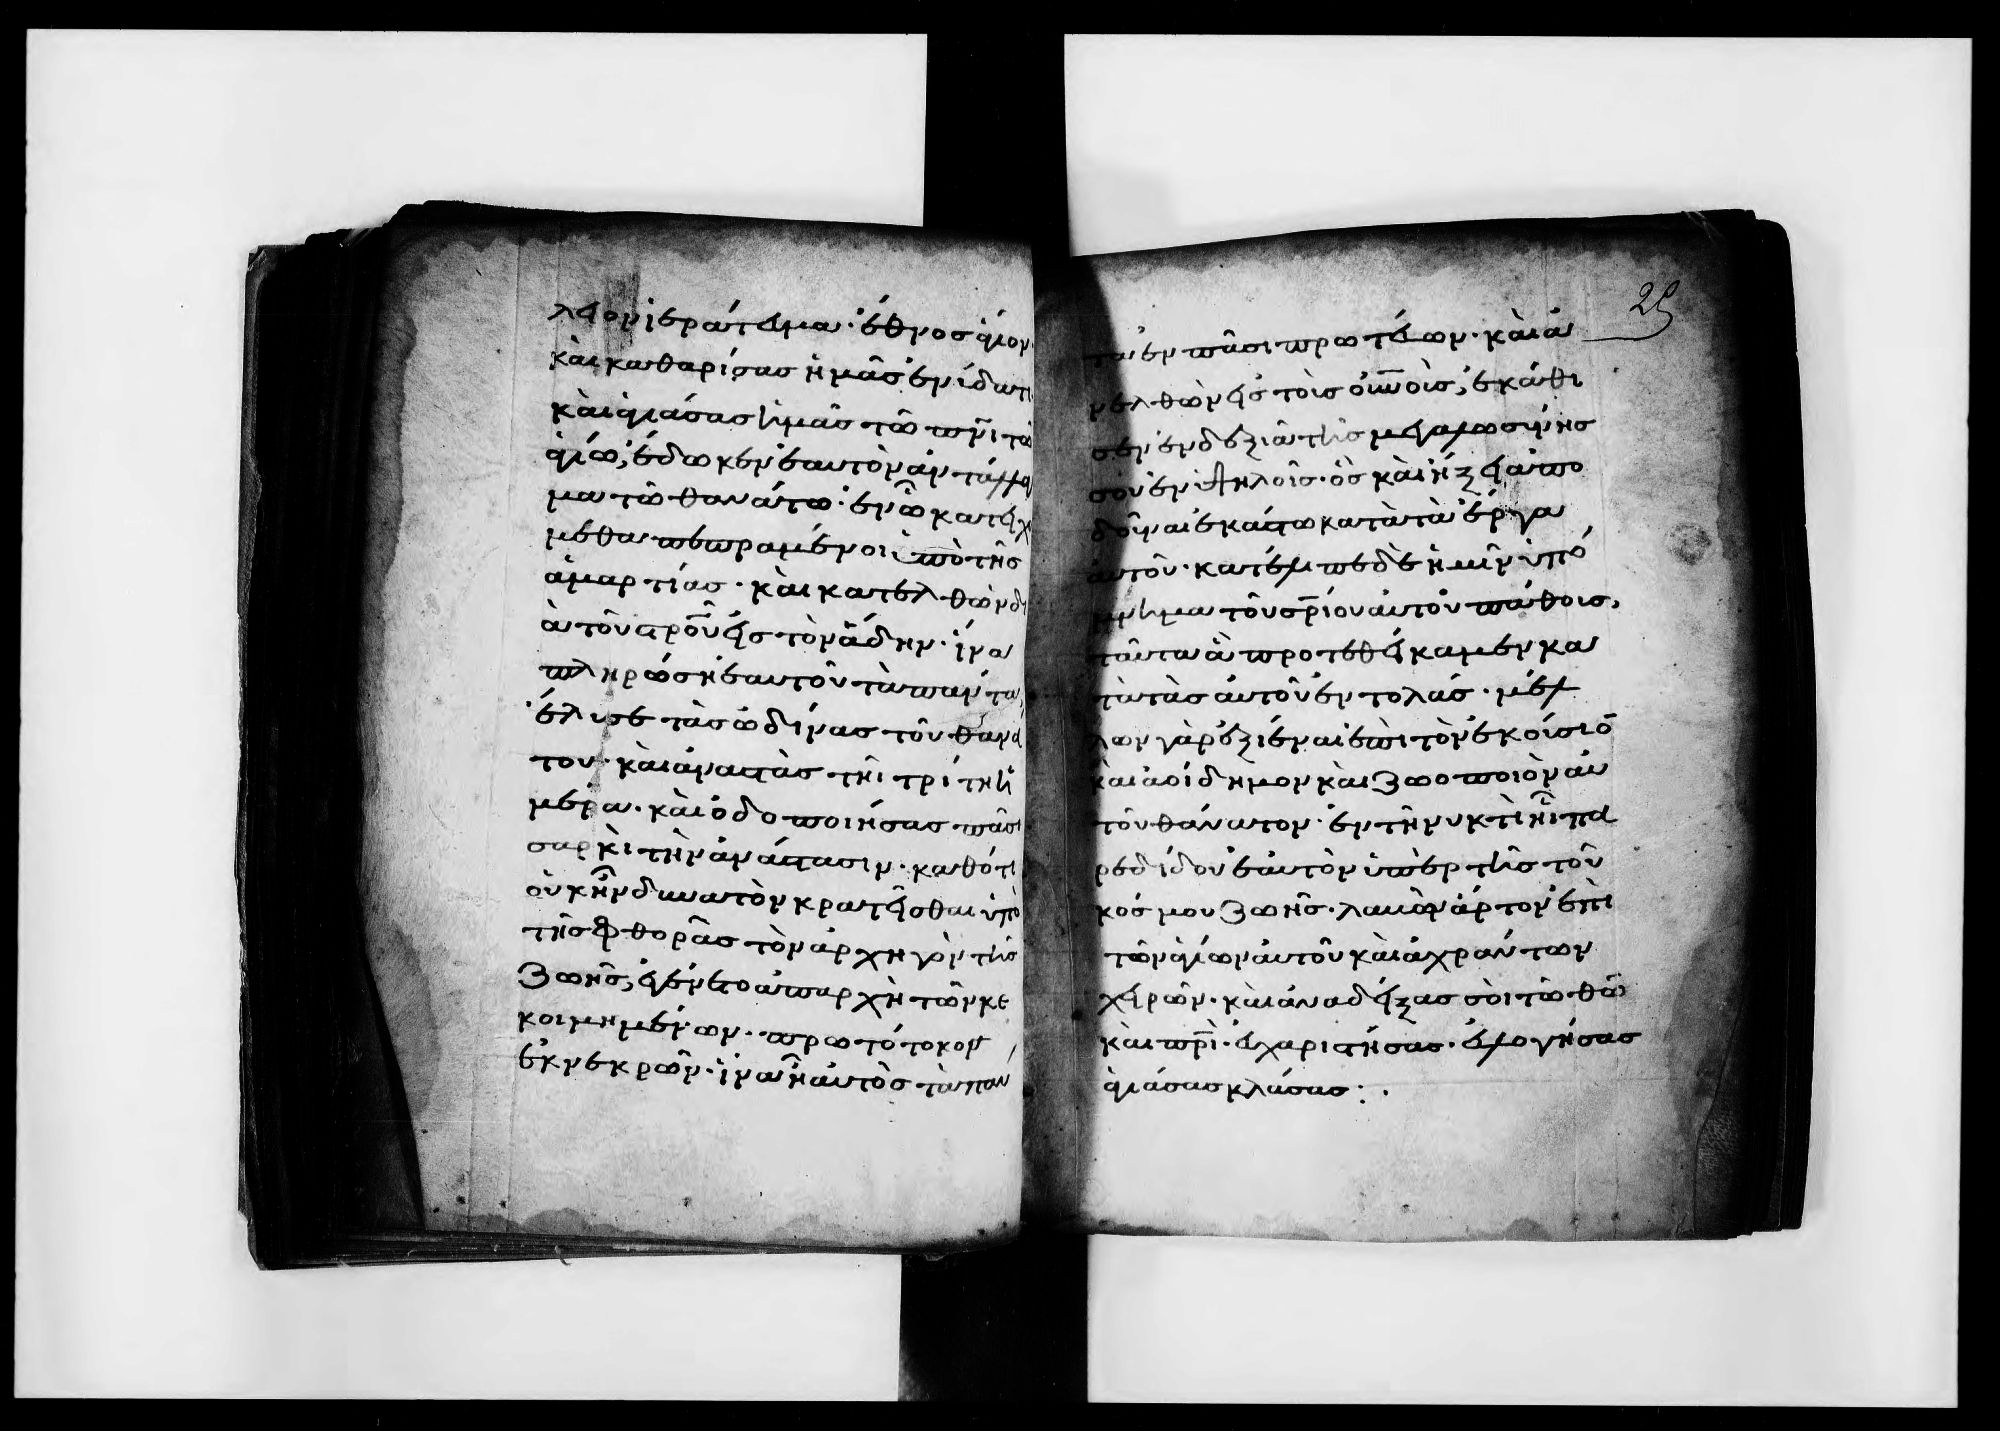 λειον ἱεράτευμα· ἔθνος ἅγιον·
καὶ καθαρίσας ἡμᾶς ἐν ὕδατι
καὶ ἁγιάσας ἡμᾶς τῶ πνι τῶ
ἁγίω, ἔδωκεν ἑαυτὸν ἀντάλλαγ
μα τῶ θανάτω· ἐν ὧ κατειχό
μεθα πεπραμένοι ὑπὸ τῆς
ἁμαρτίας· καὶ κατελθὼν δι
ὰ τοῦ στροῦ εἰς τὸν ἅδην· ἵνα
πληρώση ἑαυτοῦ τὰ πάντα,
ἔλυσε τὰς ὠδίνας τοῦ θανά
του· καὶ ἀναστὰς τῆι τρίτη ἡ
μέρα· καὶ ὁδοποιήσας πάσι
σαρκὶ τὴν ἀνάστασιν· καθότι
οὐκ ἦν δυνατὸν κρατεῖσθαι ὑπὸ
τῆς φθορᾶς τὸν ἀρχηγὸν τῆς
ζωῆς, ἐγένετο ἀπαρχὴ τῶν κε
κοιμημένων· πρωτότοκος
ἐκ νεκρῶν· ἵνα ἦ αὐτὸς τὰ παν
25
τα ἐν πᾶσι πρωτεύων· καὶ ἀ
νελθὼν εἰς τοὺς οὐνοὺς, ἐκάθι
σεν ἐν δεξιᾶ τῆς μεγαλωσύνης
σου ἐν ὑψηλοῖς· ὃς καὶ ἥξει ἀπο
δοῦναι ἑκάστω κατὰ τὰ ἔργα
αὐτοῦ· κατέλιπε δὲ ἡμῖν ὑπό
μνημα τοῦ σρίου αὐτοῦ πάθους,
ταῦτα ἃ προτεθείκαμεν κα
τὰ τὰς αὐτοῦ ἐντολάς· μέλ
λων γὰρ ἐξιέναι ἐπὶ τὸν ἑκούσιο
καὶ ἀοίδημον καὶ ζωοποιὸν αὐ
τοῦ θάνατον· ἐν τῆ νυκτὶ ἧι πα
ρεδίδου ἑαυτὸν ὑπὲρ τῆς τοῦ
κόσμου ζωῆς· λαβὼν ἄρτον ἐπὶ
τῶν ἁγίων αὐτοῦ καὶ ἀχράντων
χειρῶν· καὶ ἀναδείξας σοὶ τῶ θῶ
καὶ πρὶ· εὐχαριστήσας· εὐλογήσας
ἁγιάσας κλάσας:·